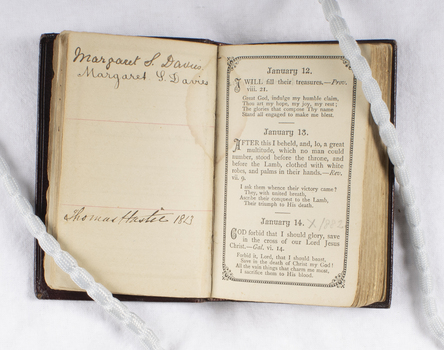 Margaret S. Davies
Margaret S. Davies
Thomas
January 12.
I WILL fill their treasures.—Prov.
viii. 21.
Great God, indulge my humble claim,
Thou art my hope, my joy, my rest;
The glories that compose Thy name
Stand all engaged to make me blest.
January 13.
AFTER this I beheld, and, lo, a great
multitude, which no man could
number, stood before the throne, and
before the Lamb, clothed with white
robes, and palms in their hands.—Rev.
vii. 9.
I ask them whence their victory came?
They, with united breath,
Ascribe their conquest to the Lamb,
Their triumph to His death.
January 14.
GOD forbid that I should glory, save
in the cross of our Lord Jesus
Christ.—Gal. vi. 14.
Forbid it, Lord, that I should boast,
Save in the death of Christ my God!
All the vain things that charm me most,
I sacrifice them to His blood.